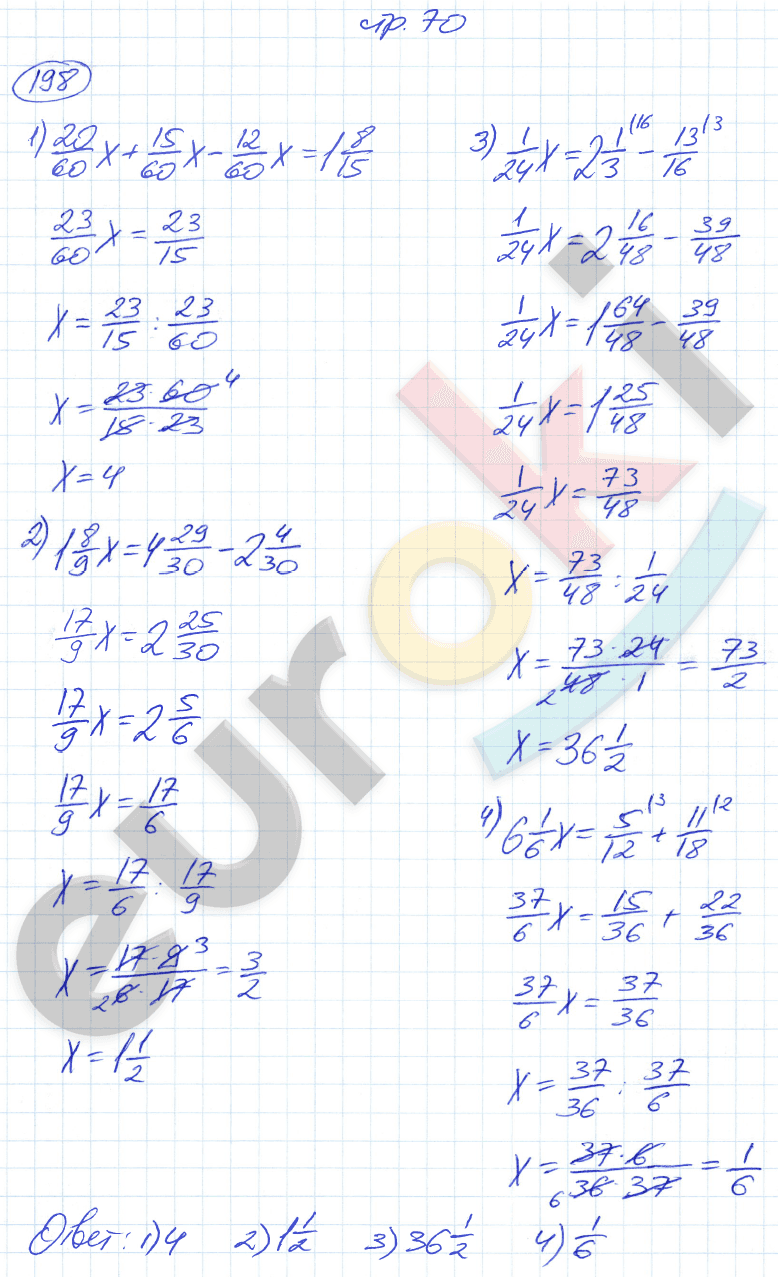 стр. 70
198
1) 20/60 x + 15/60 x − 12/60 x = 1 8/15
23/60 x = 23/15
x = 23/15 : 23/60
x = 23·60 4 / 15·23
x = 4
2) 1 8/9 x = 4 29/30 − 2 4/30
17/9 x = 2 25/30
17/9 x = 2 5/6
17/9 x = 17/6
x = 17/6 : 17/9
x = 17·9 3 / 2 6·17 = 3/2
x = 1 1/2
3) 1/24 x = 2 1/3 (16 − 13/16 (3
1/24 x = 2 16/48 − 39/48
1/24 x = 1 64/48 − 39/48
1/24 x = 1 25/48
1/24 x = 73/48
x = 73/48 : 1/24
x = 73·24 / 2 48·1 = 73/2
x = 36 1/2
4) 6 1/6 x = 5/12 (3 + 11/18 (2
37/6 x = 15/36 + 22/36
37/6 x = 37/36
x = 37/36 : 37/6
x = 37·6 / 6 36·37 = 1/6
Ответ: 1) 4 2) 1 1/2 3) 36 1/2 4) 1/6
euroki